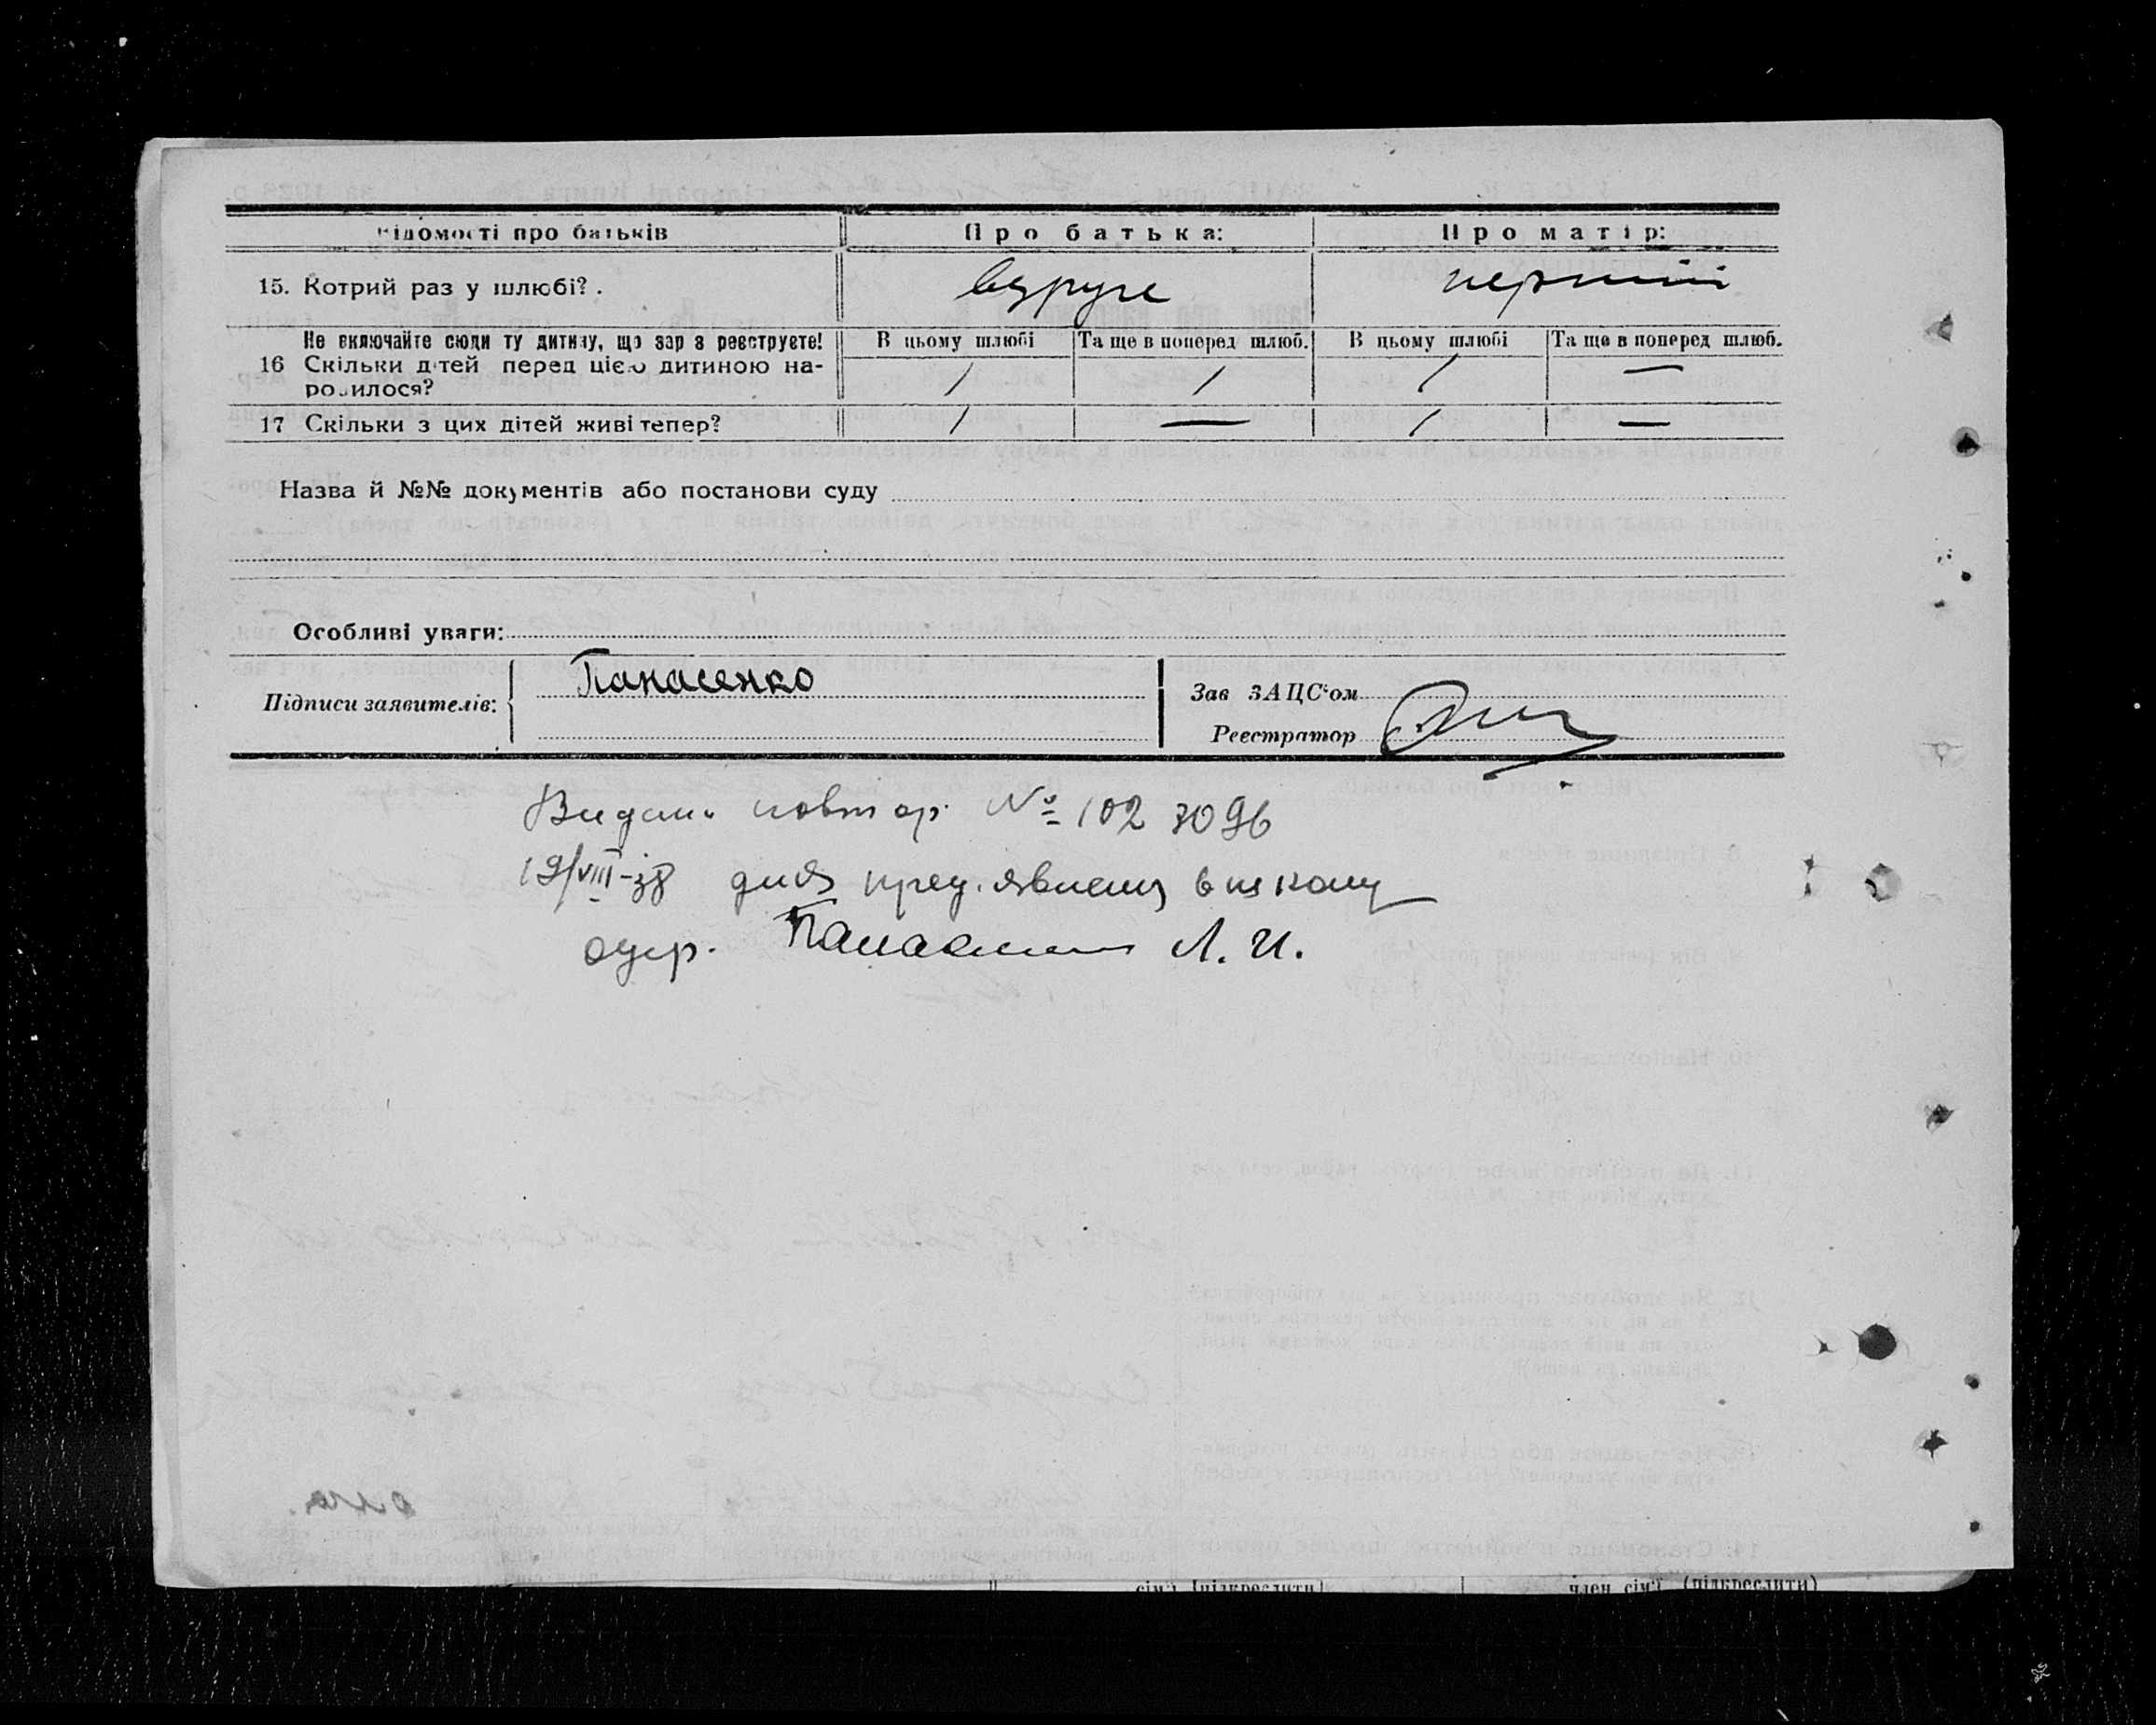 Відомості про батьків | Про батька: | Про матір:
15. Котрий раз у шлюбі? . | вдруге | перший
Не включайте сюди ту дитину, що зараз реєструєте! | В цьому шлюбі | Та ще в поперед шлюб. | В цьому шлюбі | Та ще в поперед шлюб.
16 Скільки дітей перед цією дитиною на- | / | / | / | —
родилося?
17 Скільки з цих дітей живі тепер? | / | — | / | —
Назва й №№ документів або постанови суду
Особливі уваги:
Підписи заявителів: Панасенко
Зав ЗАЦС'ом
Реєстратор
Видани повтор. № 1023096
19/VIII-38 для пред'явлення в школу
одер. Панасенко Л. И.
сім'ї (підкреслити) член сім'ї (підкреслити)